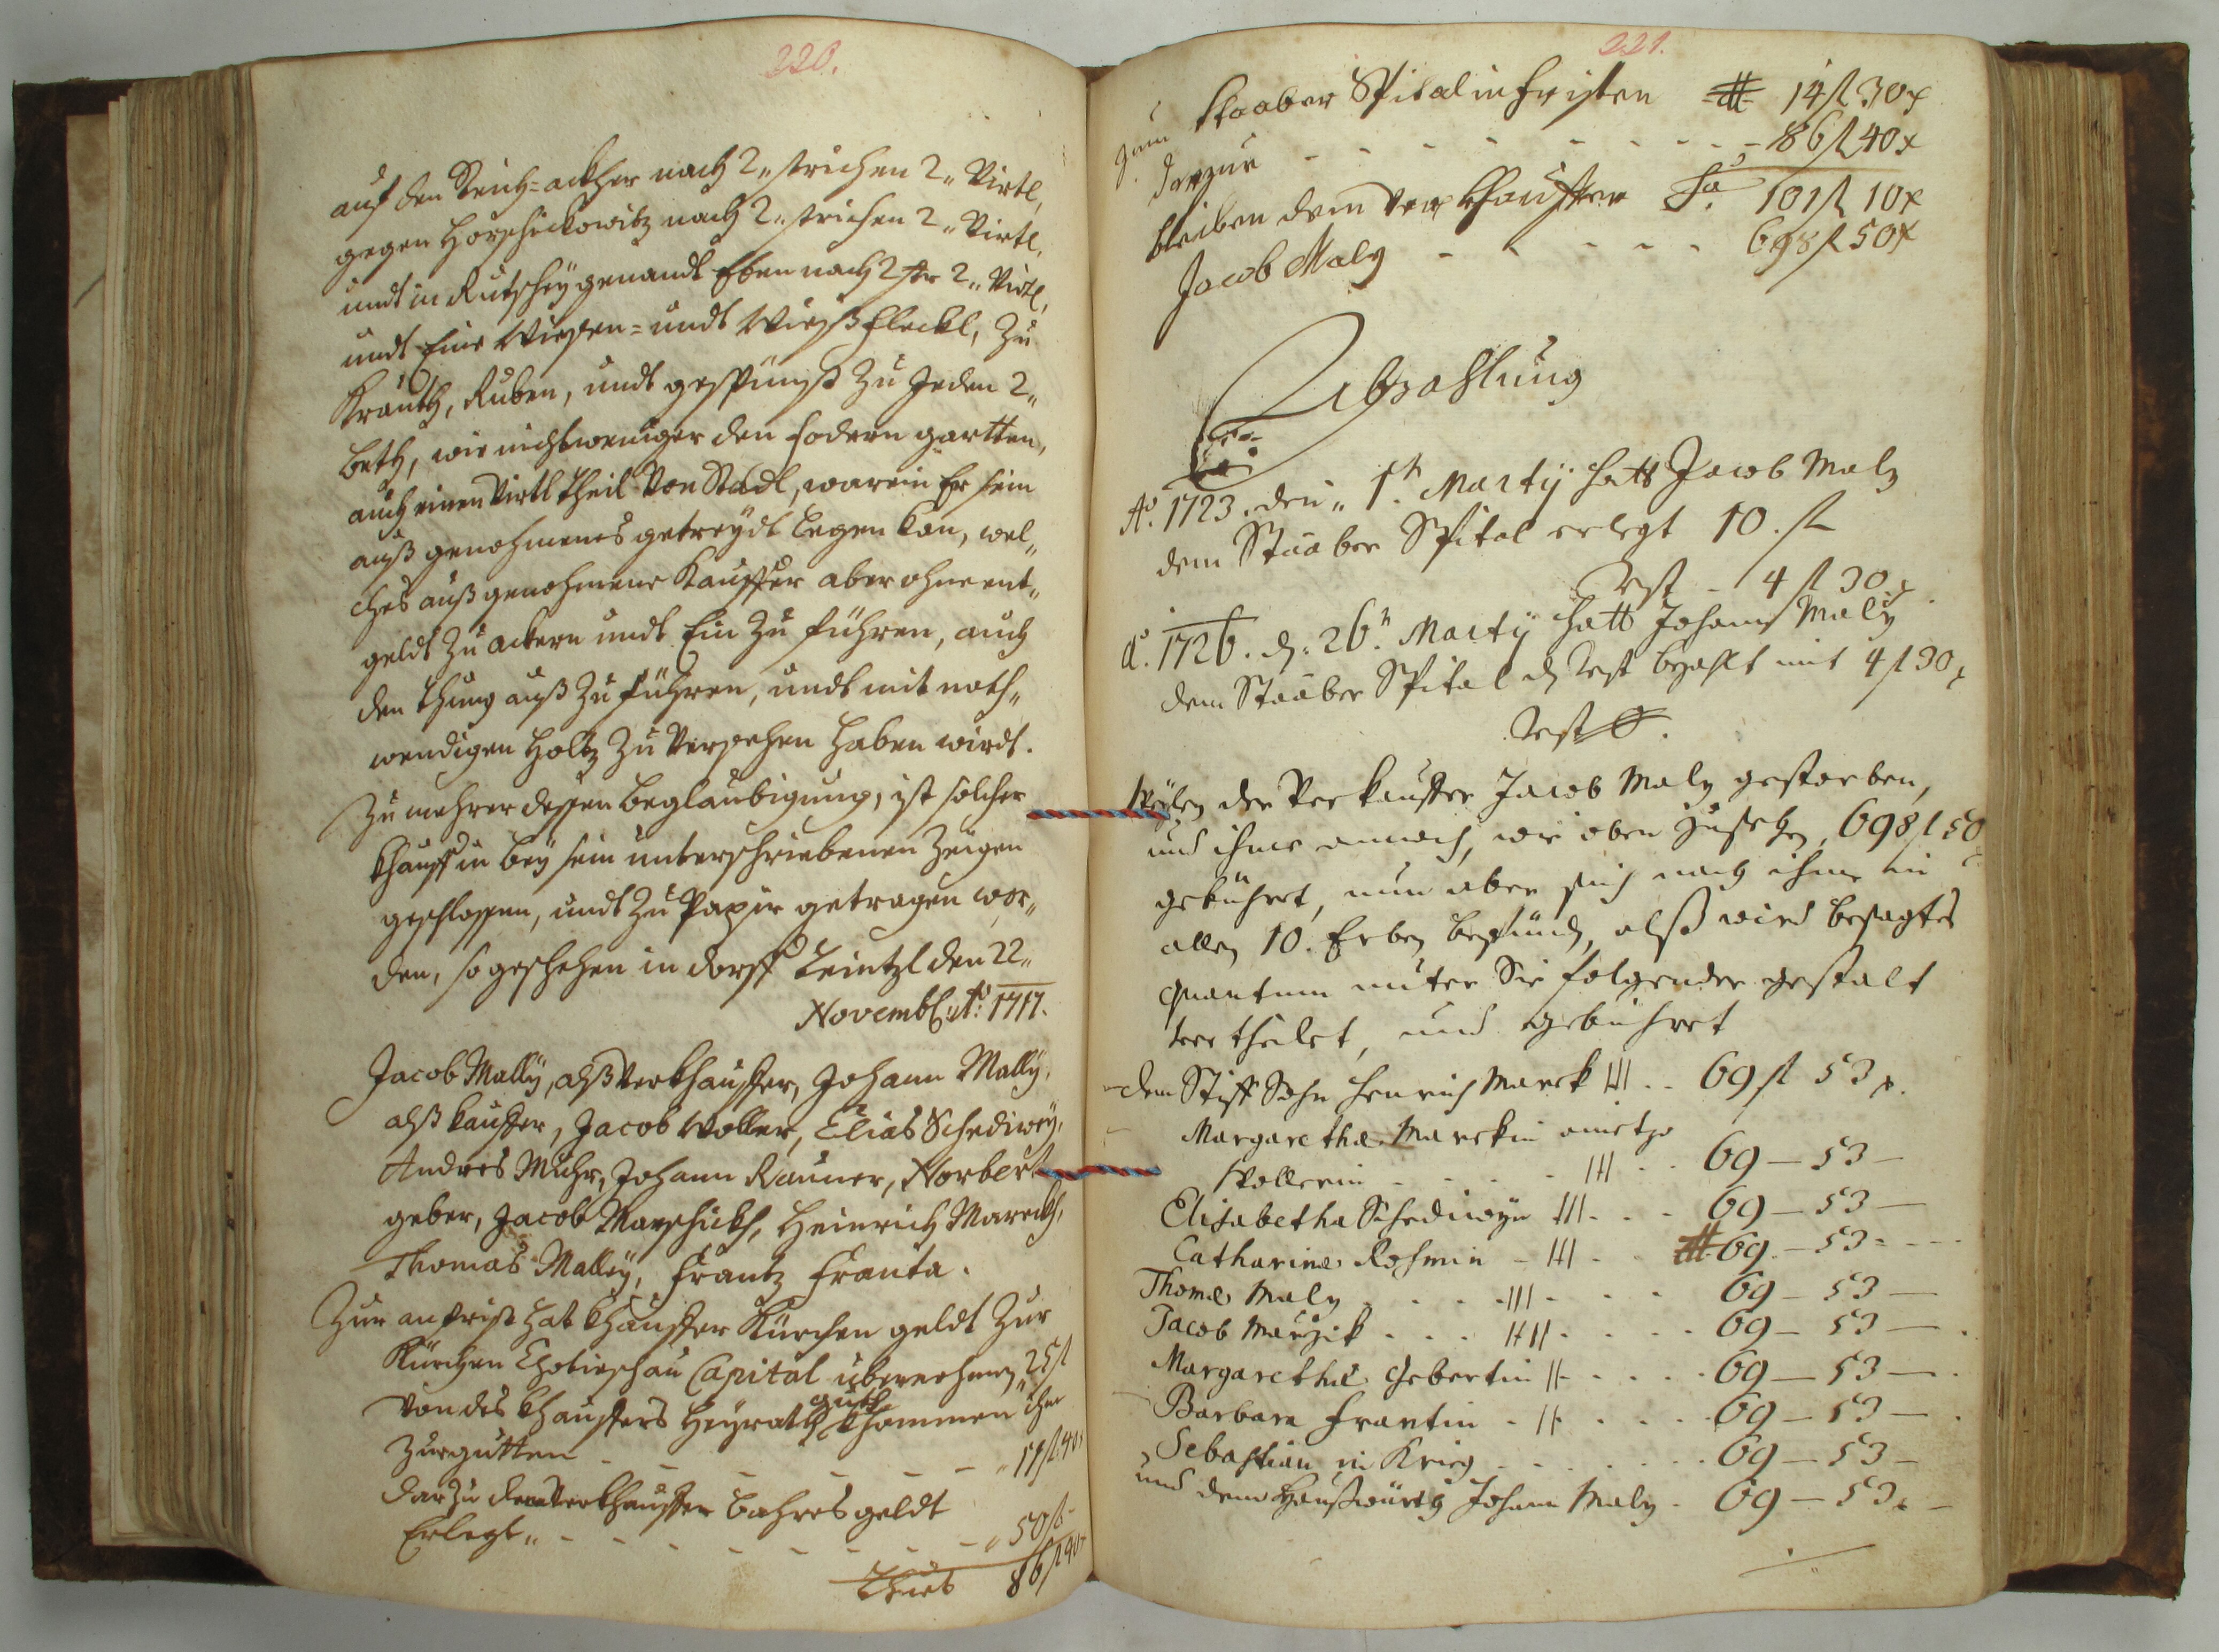 220.
auf den Teich=ackher nach 2„ strichen 2„ Virtl,
gegen Horschikowitz nach 2„ strichen 2„ Virtl,
undt in Rutschey genandt Eben nach 2 str 2„ Virtl,
undt Eine Wiesen= undt Wießfleckl, Zu
Krauth, Ruben, undt gespünst Zu Jeden 2„
beth, wie nicht weniger den fodern gartten,
auch einen Virtl theil Von Stadl, warein Er sein
auß genohmenes getreydt Legen kan, wel„
ches außgenohmene Kauffer aber ohne ent„
geldt Zu ackern undt Ein Zu führen, auch
den thung auß Zu führen, undt mit noth„
wendigen Holtz Zu Versehen haben wirdt.
Zu mehrer dessen beglaubigung, ist solcher
Khauff in bey sein unterschriebenen Zeigen
geschlossen, undt Zu Papir getragen wor„
den, so geschehen in dorff Leintzl den 22„
Novembl: Aō: 1717.
Jacob Mally, alß Verkhauffer, Johann Mally,
alß kauffer, Jacob Woller, Elias Schediwey,
Andres Muhr, Johann Rauner, Norbert
geber, Jacob Marschickh, Heinrich Mareckh,
Thomas Malley, Frantz Franta.
Zur anfrist hat Khauffer Kürchen geldt Zur
Kürchen Chotieschau Capital übernohmen 25 fl
Von des Khauffers Heyrath guth khommen ihm
Zur gutten - - - - - - 11 fl 40 x
dar Zu dem Verkhauffer bahres geldt
Erlegt„ - - - - - - - 50 fl -
thut 86 fl 40 x
221.
Zum Staaber Spital in fristen 14 fl 30 x
darzue - - - - - - - 86 fl 40 x
Sa. 101 fl 10 x
bleiben dem Verkhauffer
Jacob Maly - - - - - 698 fl 50 x
Abzahlung
Aō. 1723. den„ 1t. Martij hatt Jacob Maly
dem Staaber Spital erlegt 10. fl
Rest - 4 fl 30 x.
aō. 1726. d. 26n Martij hatt Johann Maly
dem Staaber Spital d Rest bezahlt mit 4 fl 30 x
Rest 0.
Weylen der Verkauffer Jacob Maly gestorben,
und ihme annoch, wie oben zusehen, 698 fl 50 x
gebühret, nun aber sich nach ihme in
allen 10. Erben befünden, alß wird besagtes
quantum unter Sie folgender gestalt
vertheilet, und gebühret
dem Stiff Sohn Henrich Marek - - 69 fl 53 x.
Margaretha Marekin anietzo
Wollerin - - - - 69 — 53 —
Elisabetha Schediwyn - - - 69 — 53 —
Catharina Rohmin - - - 69 — 53 - - -
Thomas Maly - - - - 69 — 53 —
Jacob Marzik - - - - 69 — 53 —
Margaretha Gebertin - - - - 69 — 53 —
Barbara Frantin - - - - 69 — 53 —
Sebastian in Krieg - - - - 69 — 53 —
und dem Haußwürth Johann Maly - 69 — 53 x —